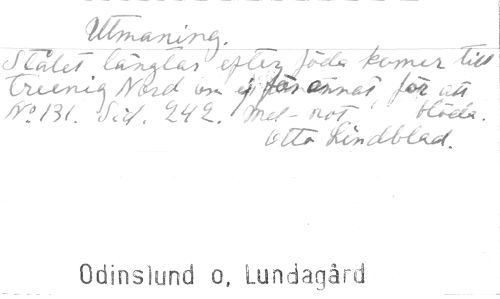 Utmaning.
Stålet längtar efter föda komer till
treenig Nord om ej för annat, för att
No 131. Sid. 242. Mel- not blöda.
Otto Lindblad.
Odinslund o, Lundagård